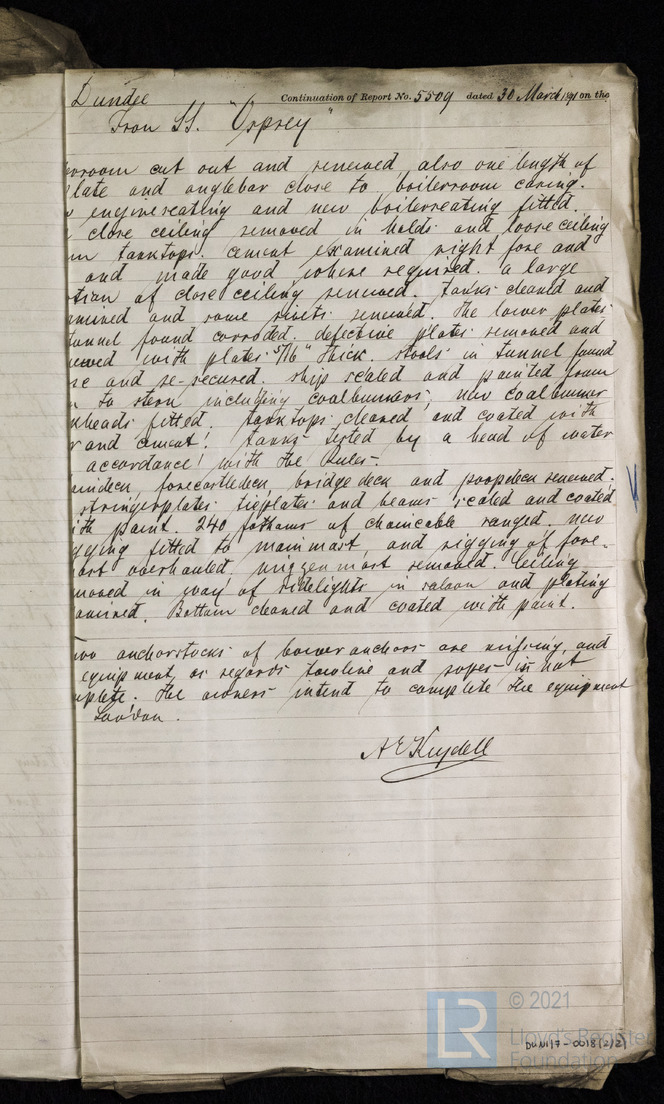 Dundee Continuation of Report No. 5509 dated 30 March 1891 on the
Iron SS. "Osprey"
room cut out and renewed, also one length of
plate and anglebar close to boilerroom casing.
engineseating and new boilerseating fitted.
close ceiling removed in holds and loose ceiling
tanktops. cement examined right fore and
and made good where required. a large
of close ceiling renewed. tanks cleaned and
and some rivets renewed. The lower plates
tunnel found corroded. defective plates removed and
with plates 5/16" thick. stools in tunnel found
and re-secured. ship scaled and painted from
to stern including coalbunkers, new coalbunker
fitted. tanktops cleaned and coated with
and cement. tanks tested by a head of water
accordance with the Rules.
forecastledeck, bridgedeck and poopdeck renewed.
stringerplates tieplates and beams scaled and coated
with paint. 240 fathoms of chaincable ranged. new
fitted to mainmast, and rigging of fore-
overhauled, mizzenmast removed. Ceiling
in way of sidelights in saloon and plating
Bottom cleaned and coated with paint.
anchorstocks of bower anchors are missing, and
equipment, as regards towline and ropes is not
The owners intend to complete the equipment
London.
© 2021
LR
Lloyd's Register
Foundation
DUN17-0018(2/2)